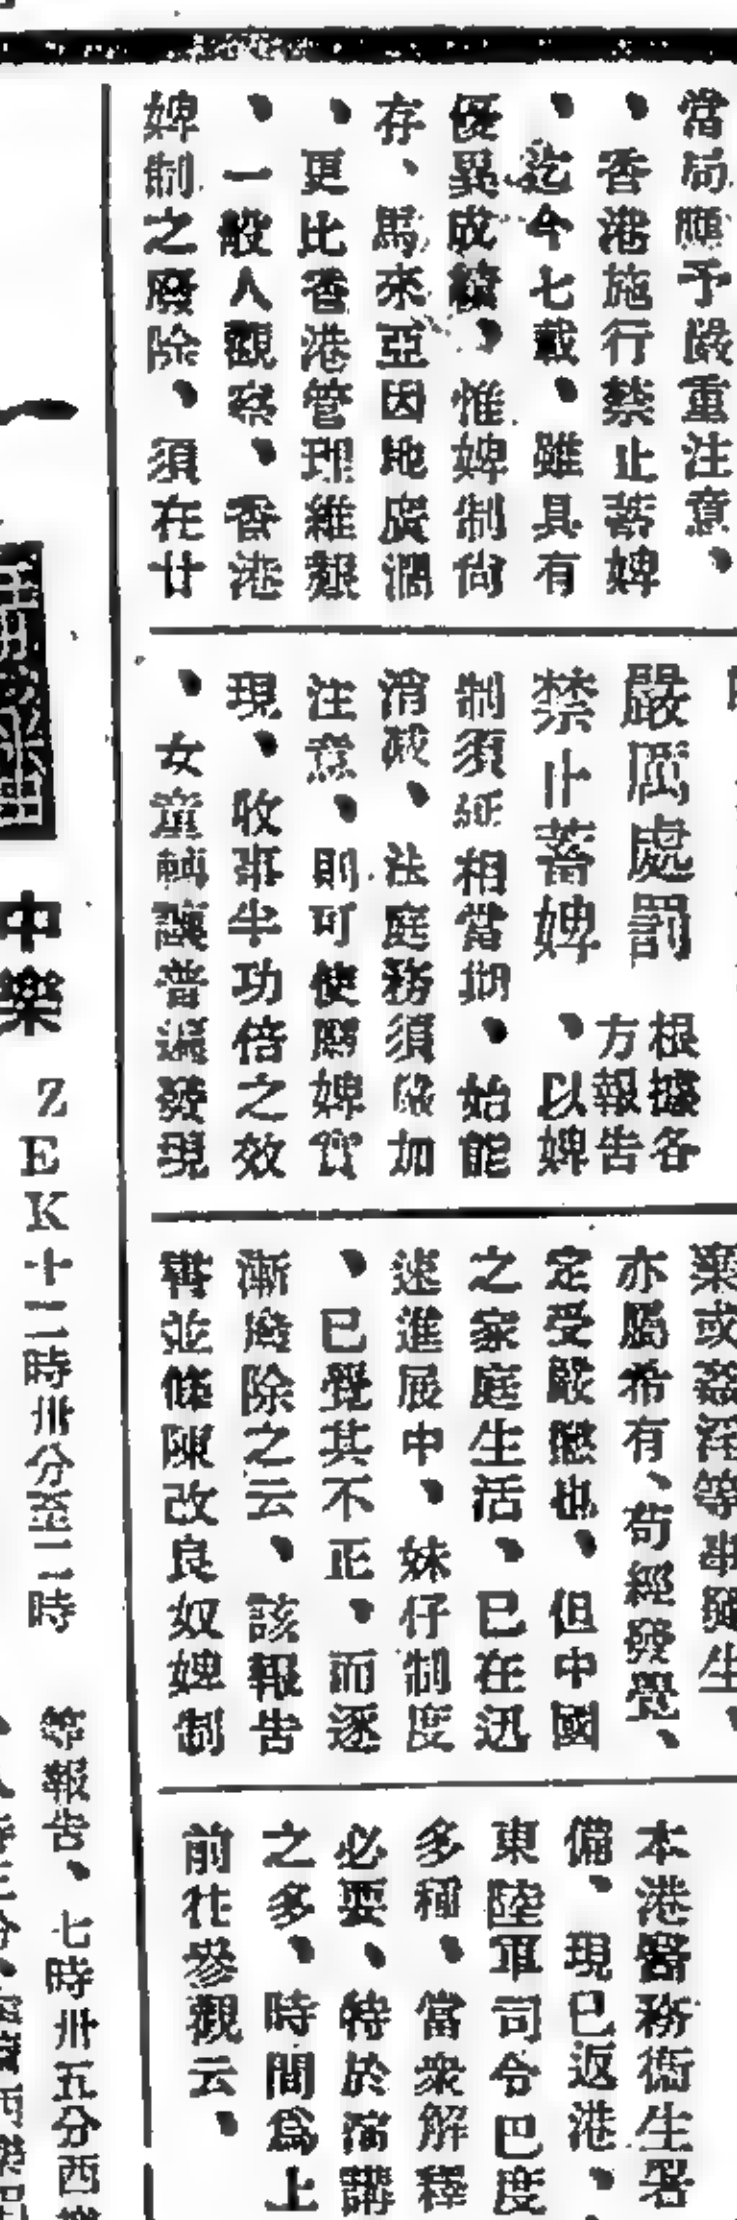 當局應予嚴重注意、
、香港施行禁止蓄婢
、迄今七載、雖具有
優異成績、惟婢制尙
存、馬來亞因地廣濶
、更比香港管理維艱
、一般人觀察、香港
婢制之廢除、須在廿
嚴厲處罰
禁止蓄婢
根據各
方報告
、以婢
制須延相當期、始能
消滅、法庭務須嚴加
注意、則可使廢婢實
現、收事半功倍之效
、女童轉讓普遍發現
棄或姦淫等事發生、
亦屬希有、苟經發覺、
定受嚴懲也、但中國
之家庭生活、已在迅
速進展中、妹仔制度
、已覺其不正、而逐
漸廢除之云、該報告
書並條陳改良奴婢制
本港醫務衞生署
備、現已返港、
東陸軍司令巴度
多種、當衆解釋
必要、特於演講
之多、時間爲上
前往參觀云、
中樂
ZEK十二時卅分至二時
報告、七時卅五分西樂